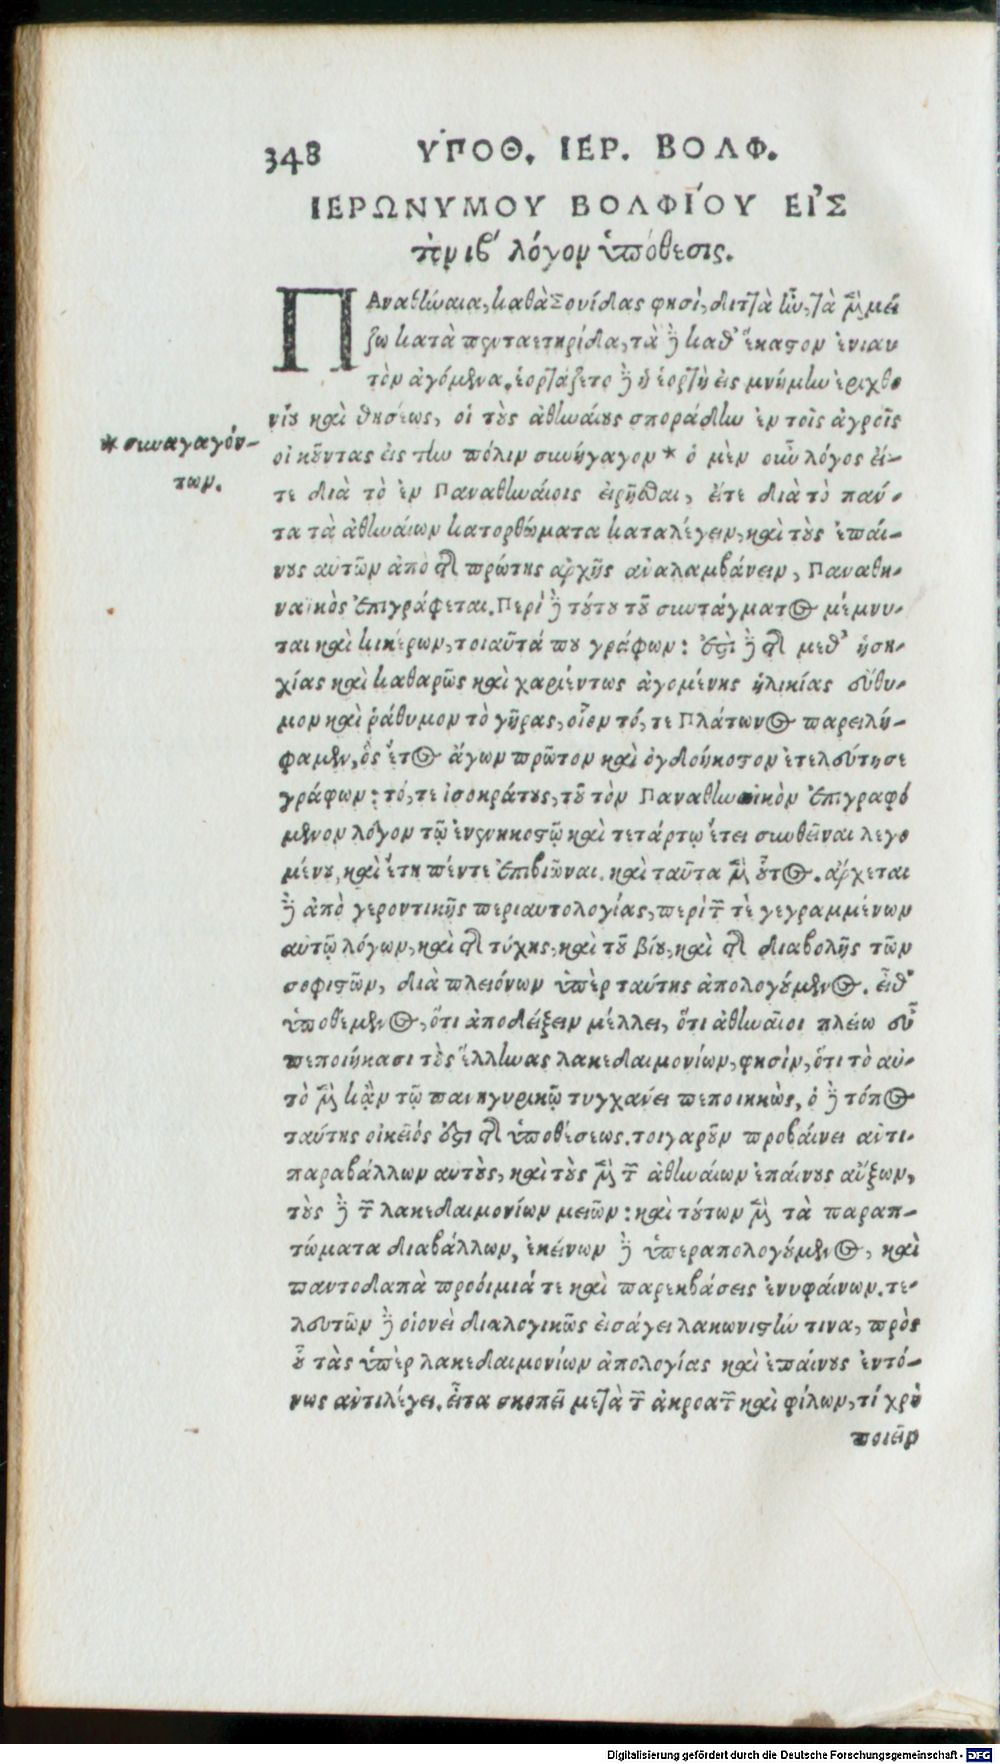 348 ΥΠΟΘ. ΙΕΡ. ΒΟΛΦ.
ΙΕΡΩΝΥΜΟΥ ΒΟΛΦΙΌΥ ΕΙ᾿Σ
τὸν ιβ' λόγον ὑπόθεσις.
ΠΑναθώαια, καθὰ Σουίδας φησὶ, διττὰ ἦν, τὰ μὲν μεί
ζω κατὰ πενταετηρίδα, τὰ δὲ καθ' ἕκαστον ἐνιαυ
τὸν ἀγόμενα. ἑορτάζετο δὲ ἡ ἑορτὴ εἰς μνήμην ἐριχθο
νίου καὶ θησέως, οἱ τοὺς ἀθηναίους σποράδην ἐν τοῖς ἀγροῖς
οἰκοῦντας εἰς τὴν πόλιν συνήγαγον * ὁ μὲν οὖν λόγος εἴ-
* συναγαγόν-
των.
τε διὰ τὸ ἐν Παναθηναίοις εἰρῆσθαι, εἴτε διὰ τὸ πάν-
τα τὰ ἀθηναίων κατορθώματα καταλέγειν, καὶ τοὺς ἐπαί-
νους αὐτῶν ἀπὸ τῆς πρώτης ἀρχῆς ἀναλαμβάνειν, Παναθη-
ναϊκὸς ἐπιγράφεται. Περὶ δὲ τούτου τοῦ συντάγματος μέμνη-
ται καὶ κικέρων, τοιαῦτά που γράφων: ἔστι δὲ τῆς μεθ' ἡσυ-
χίας καὶ καθαρῶς καὶ χαριέντως ἀγομένης ἡλικίας εὔθυ-
μον καὶ ῥάθυμον τὸ γῆρας, οἷον τό, τε Πλάτωνος παρειλή-
φαμεν, ὃς ἔτος ἄγων πρῶτον καὶ ὀγδοήκοστον ἐτελεύτησε
γράφων: τό, τε ἰσοκράτους, τοῦ τὸν Παναθηναϊκὸν ἐπιγραφό
μενον λόγον τῷ ἐνενηκοστῷ καὶ τετάρτῳ ἔτει συνθεῖναι λεγο
μένου, καὶ ἔτη πέντε ἐπιβιῶναι. καὶ ταῦτα μὲν οὗτος. ἄρχεται
δὲ ἀπὸ γεροντικῆς περιαυτολογίας, περὶ τῶν τὲ γεγραμμένων
αὐτῷ λόγων, καὶ τῆς τύχης, καὶ τοῦ βίου, καὶ τῆς διαβολῆς τῶν
σοφιστῶν, διὰ πλειόνων ὑπὲρ ταύτης ἀπολογούμενος. εἶθ'
ὑποθέμενος, ὅτι ἀποδείξειν μέλλει, ὅτι ἀθηναῖοι πλείω εὖ
πεποιήκασι τοὺς ἕλληνας λακεδαιμονίων, φησὶν, ὅτι τὸ αὐ-
τὸ μὲν κἂν τῷ πανηγυρικῷ τυγχάνει πεποιηκὼς, ὁ δὲ τόπος
ταύτης οἰκεῖός ἐστι τῆς ὑποθέσεως. τοιγαροῦν προβαίνει ἀντι-
παραβάλλων αὐτοὺς, καὶ τοὺς μὲν τῶν ἀθηναίων ἐπαίνους αὔξων,
τοὺς δὲ τῶν λακεδαιμονίων μειῶν: καὶ τούτων μὲν τὰ παραπ-
τώματα διαβάλλων, ἐκείνων δὲ ὑπεραπολογούμενος, καὶ
παντοδαπὰ προοίμιά τε καὶ παρεκβάσεις ἐνυφαίνων. τε-
λευτῶν δὲ οἱονεὶ διαλογικῶς εἰσάγει λακωνιστήν τινα, πρὸς
οὗ τὰς ὑπὲρ λακεδαιμονίων ἀπολογίας καὶ ἐπαίνους ἐντό-
νως ἀντιλέγει. εἶτα σκοπεῖ μετὰ τῶν ἀκροατῶν καὶ φίλων, τί χρὴ
ποιεῖν
Digitalisierung gefördert durch die Deutsche Forschungsgemeinschaft - DFG